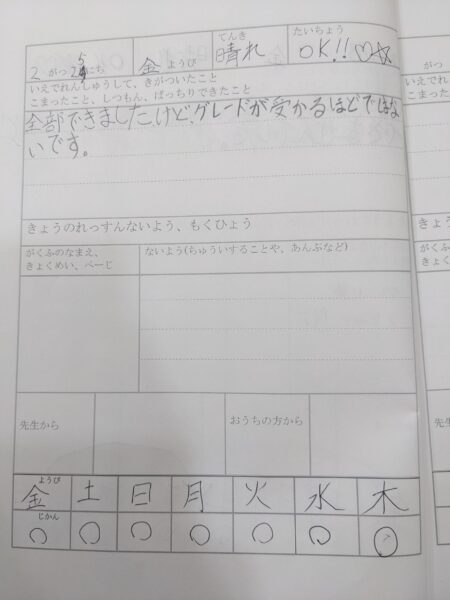 2 がつ 25 にち 金 ようび てんき 晴れ たいちょう OK!!♡☆
いえでれんしゅうして、きがついたこと
こまったこと、しつもん、ばっちりできたこと
全部できましたけど、グレードが受かるほどではな
いです。
きょうのれっすんないよう、もくひょう
がくふのなまえ、
きょくめい、ぺーじ
ないよう(ちゅういすることや、あんぷなど)
先生から
おうちの方から
ようび
金 土 日 月 火 水 木
じかん
○ ○ ○ ○ ○ ○ ○
がつ
いえでれ
こまった
きょう
がくふ
きょく
先生